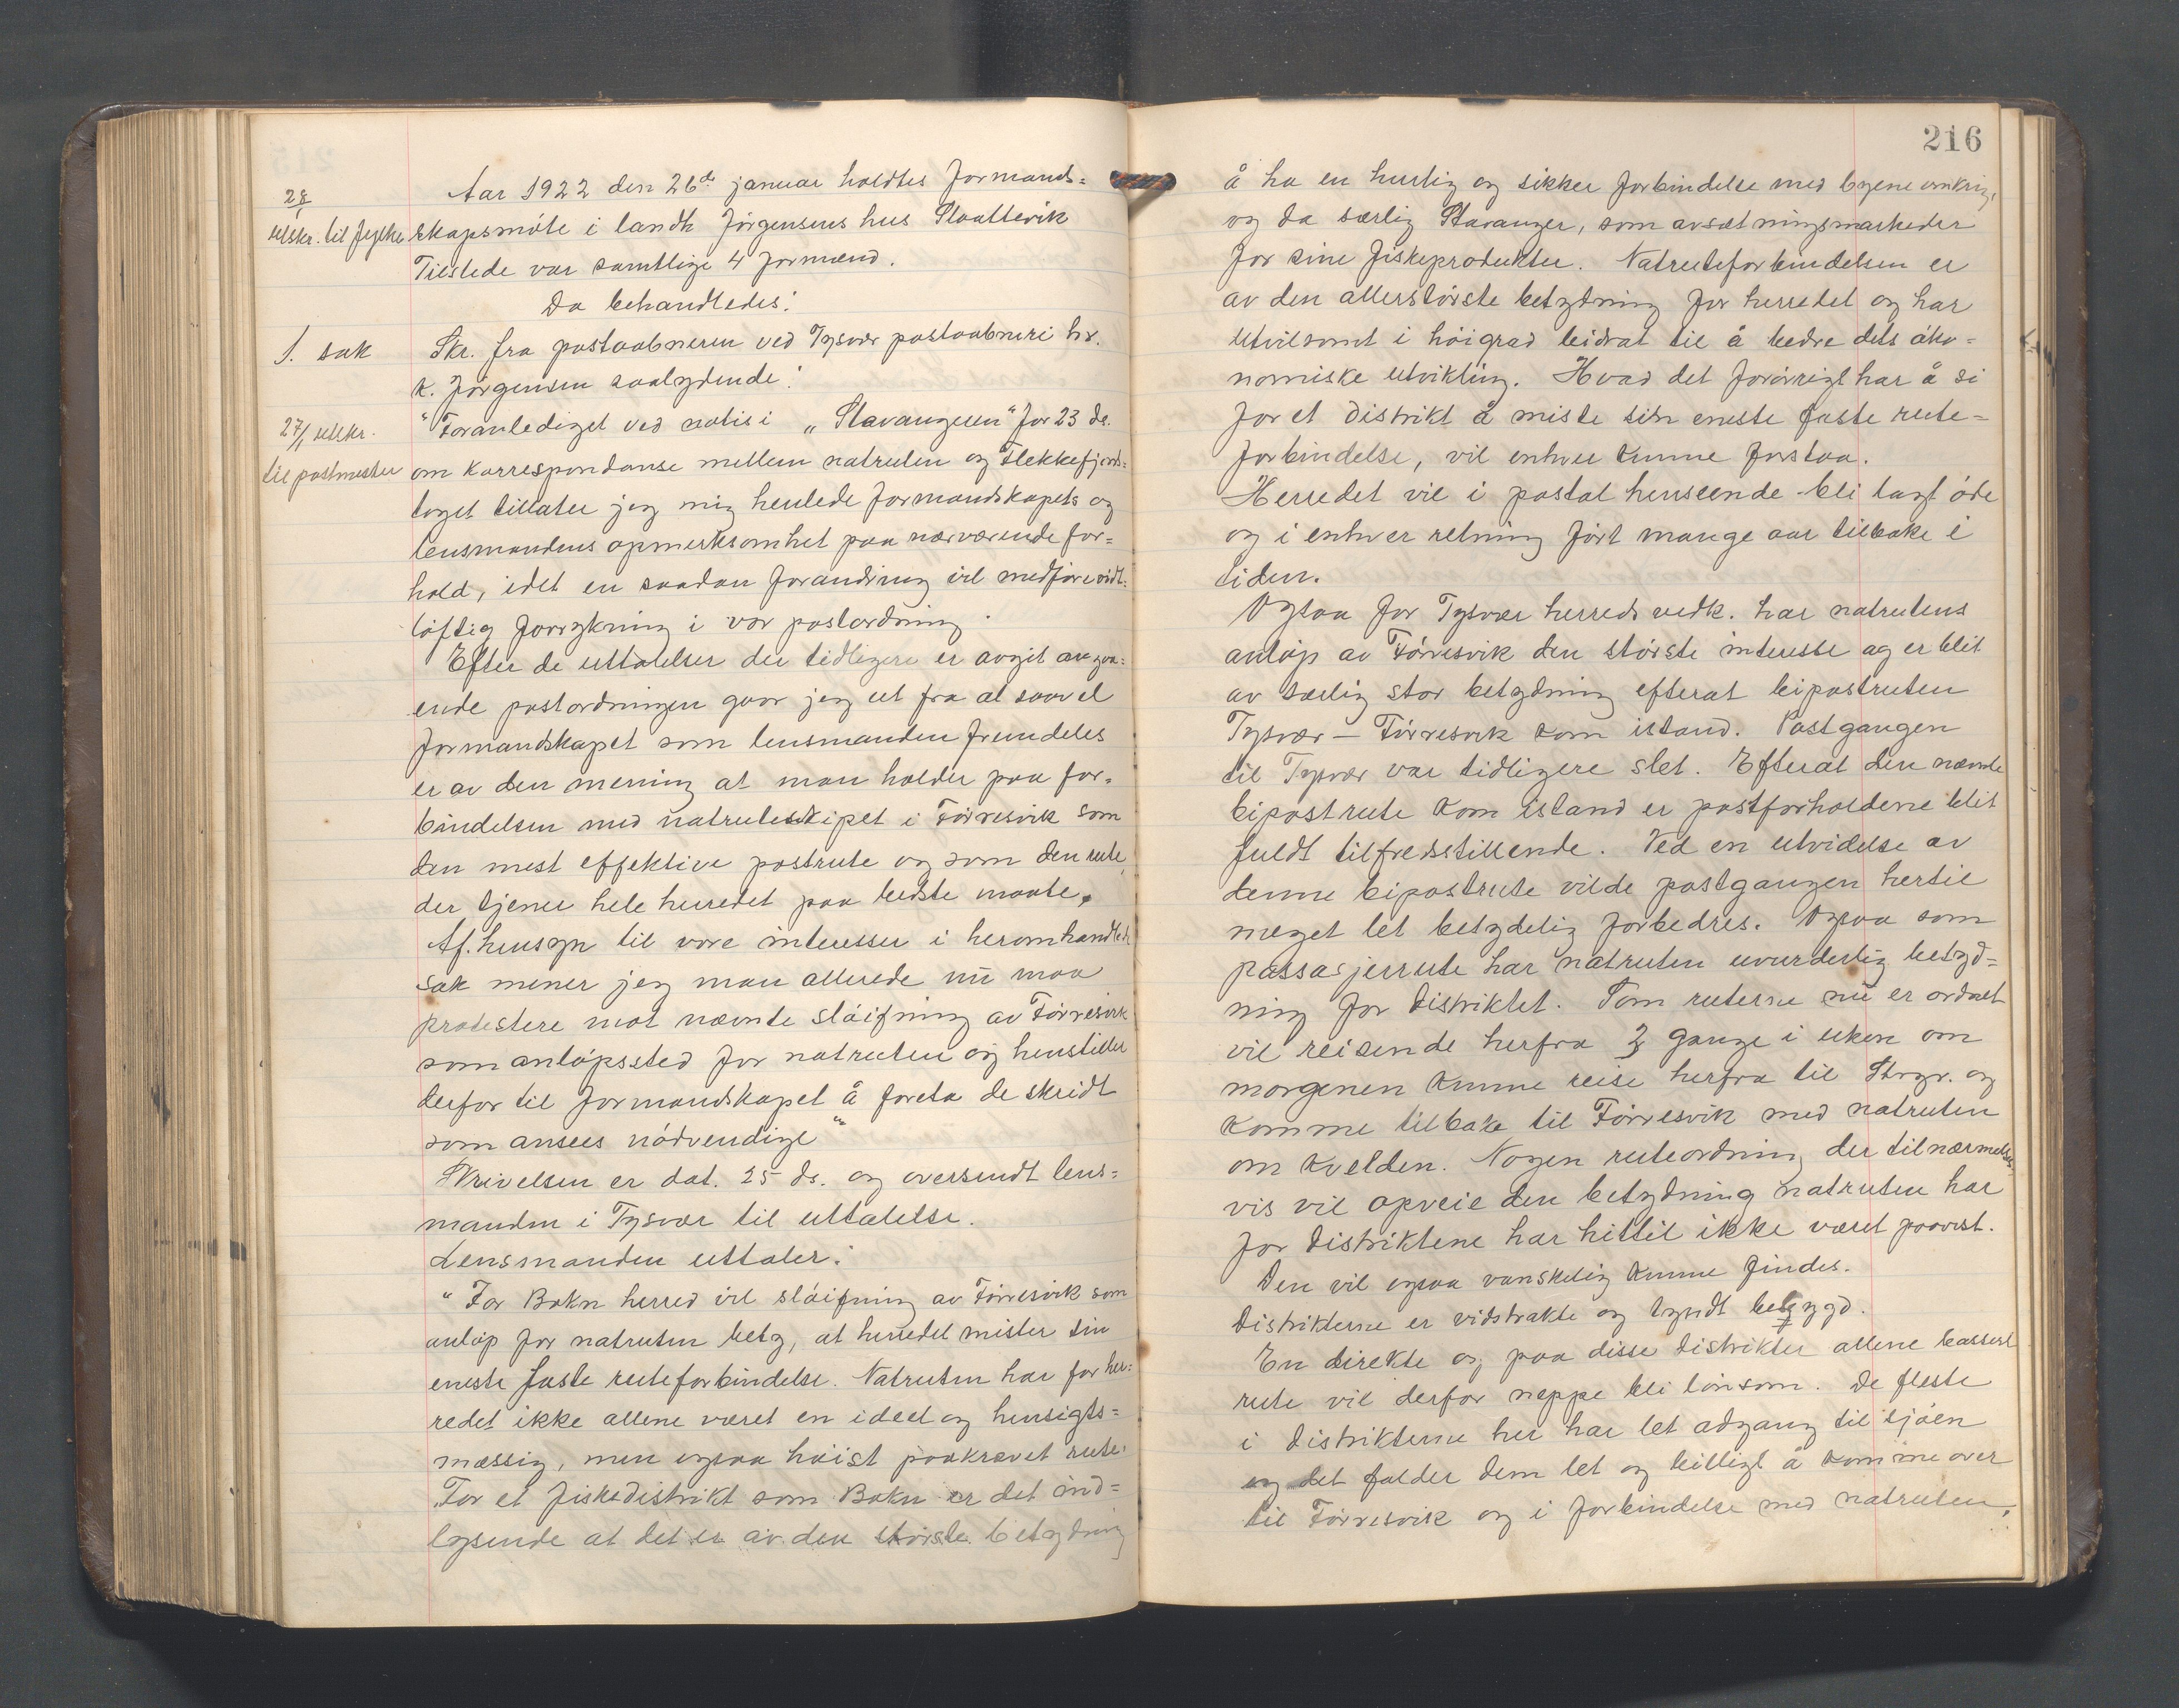 Aar 1922 den 26de januar holdtes formand-
skapsmöte i landh. Jörgensens hus Slaattevik
Tilstede var samtlige 4 formænd.
Da behandledes:
28/1
utskr. til fylke
1. sak
Skr. fra postaabneren ved Tysvær postaabneri hr.
K. Jörgensen saalydende:
27/1 utskr.
til postmester
"Foranlediget ved notis i „Stavangeren" for 23 ds.
om korrespondanse mellem natruten og Flekkefjords-
toget tillater jeg mig henlede formandskapets og
lensmandens opmerksomhet paa nærværende for-
hold, idet en saadan forandring vil medföre vidt-
löftig forrykning i vor postordning.
Efter de uttalelser der tidligere er avgit angaa-
ende postordningen gaar jeg ut fra at saavel
formandskapet som lensmanden fremdeles
er av den mening at man holder paa for-
bindelsen med natruteskipet i Förresvik som
den mest effektive postrute og som den rute,
der tjener hele herredet paa bedste maate.
Af hensyn til vore interesser i heromhandlede
sak mener jeg man allerede nu maa
protestere mot nævnte slöifning av Förresvik
som anlöpssted for natruten og henstiller
derfor til formandskapet å foreta de skridt
som ansees nödvendige"
Skrivelsen er dat. 25 ds. og oversendt lens-
manden i Tysvær til uttalelse.
Lensmanden uttaler:
"For Bokn herred vil slöifning av Förresvik som
anlöp for natruten bety, at herredet mister sin
eneste faste ruteforbindelse. Natruten har for her-
redet ikke allene været en ideel og hensigts-
mæssig, men ogsaa höist paakrævet rute.
For et fiskedistrikt som Bokn er det ind-
lysende at det er av den störste betydning
216
å ha en hurtig og sikker forbindelse med byene omkring,
og da særlig Stavanger, som avsætningsmarkeder
for sine fiskeprodukter. Natruteforbindelsen er
av den allerstörste betydning for herredet og har
utvilsomt i höi grad bidrat til å bedre dets öko-
nomiske utvikling. Hvad det forövrigt har å si
for et distrikt å miste sin eneste faste rute-
forbindelse, vil enhver kunne forstaa.
Herredet vil i postal henseende bli lagt öde
og i enhver retning fört mange aar tilbake i
tiden.
Ogsaa for Tysvær herreds vedk. har natrutens
anlöp av Förresvik den störste interesse og er blit
av særlig stor betydning efterat bipostruten
Tysvær – Förresvik kom istand. Postgangen
til Tysvær var tidligere slet. Efterat den nævnte
bipostrute kom istand er postforholdene blit
fuldt tilfredsstillende. Ved en utvidelse av
denne bipostrute vilde postgangen hertil
meget let betydelig forbedres. Ogsaa som
passasjerrute har natruten uvurderlig betyd-
ning for distriktet. Som ruterne nu er ordnet
vil reisende herfra 3 gange i uken om
morgenen kunne reise herfra til Stvgr. og
komme tilbake til Förresvik med natruten
om kvelden. Nogen ruteordning der tilnærmelses-
vis vil opveie den betydning natruten har
for distriktene har hittil ikke været paavist.
Den vil ogsaa vanskelig kunne findes.
Distrikterne er vidstrakte og tyndt bebygd.
En direkte og paa disse distrikter allene bassert
rute vil derfor neppe bli lönsom. De fleste
i distrikterne her har let adgang til sjöen
og det falder dem let og billigt å komme over
til Förresvik og i forbindelse med natruten.